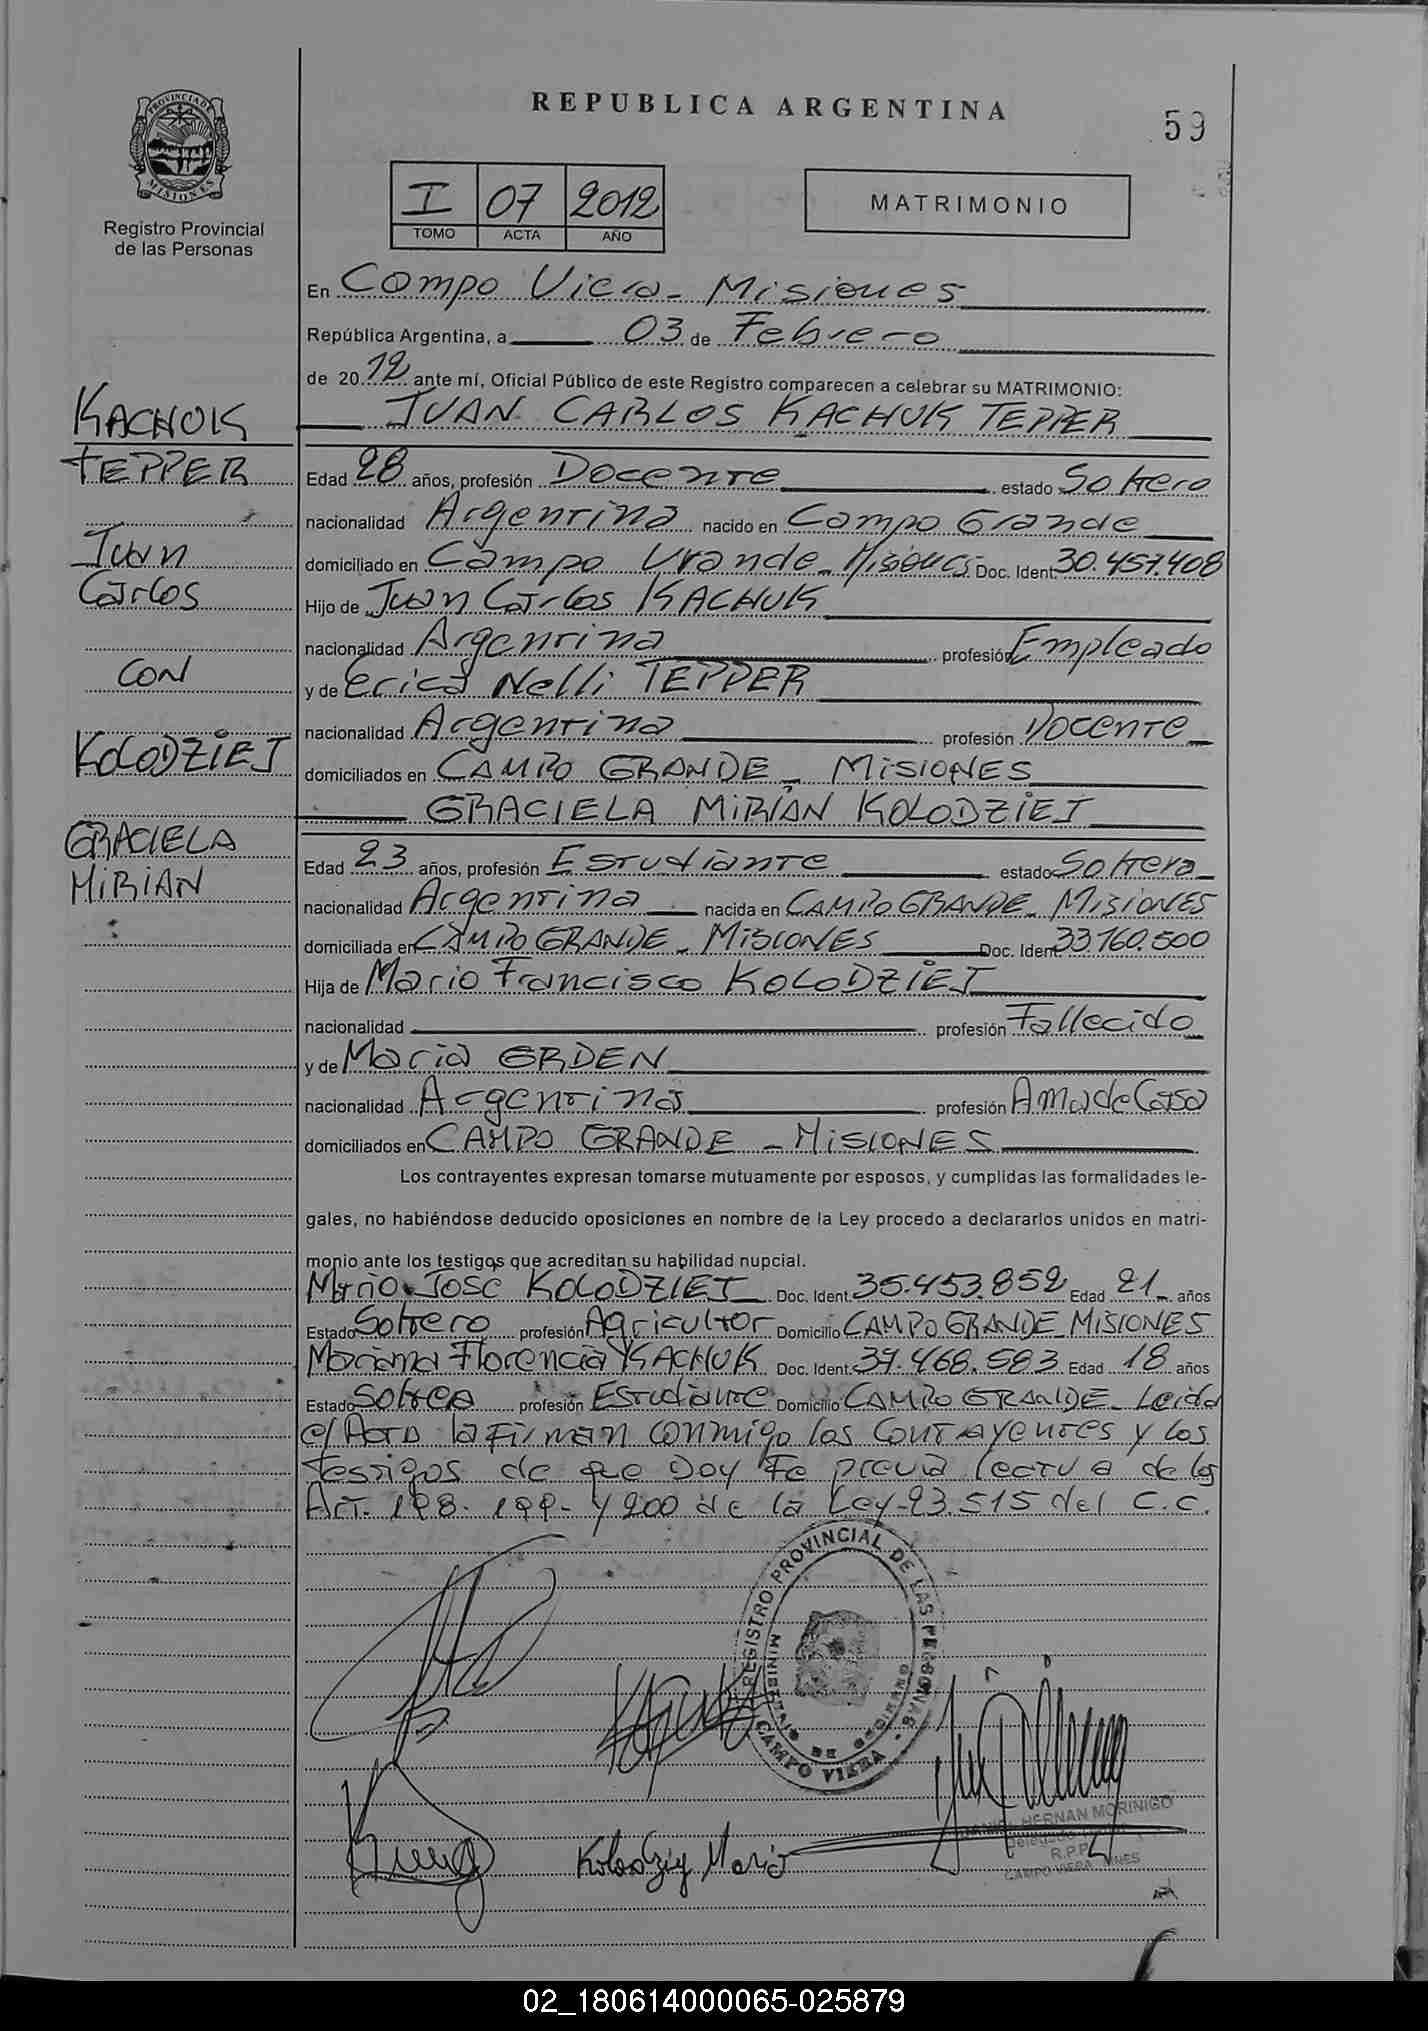 REPUBLICA ARGENTINA
59
PROVINCIA DE
MISIONES
Registro Provincial
de las Personas
I 07 2012
TOMO ACTA AÑO
MATRIMONIO
En Campo Viera - Misiones
República Argentina, a 03 de Febrero
de 2012 ante mí, Oficial Público de este Registro comparecen a celebrar su MATRIMONIO:
KACHUK
TEPPER
Juan
Carlos
CON
KOLODZIEJ
GRACIELA
MIRIAN
JUAN CARLOS KACHUK TEPPER
Edad 28 años, profesión Docente estado Soltero
nacionalidad Argentina nacido en Campo Grande
domiciliado en Campo Grande - Misiones Doc. Ident. 30.457.408
Hijo de Juan Carlos KACHUK
nacionalidad Argentina profesión Empleado
y de Erica Nelli TEPPER
nacionalidad Argentina profesión Docente
domiciliados en CAMPO GRANDE - MISIONES
GRACIELA MIRIÁN KOLODZIEJ
Edad 23 años, profesión Estudiante estado Soltera
nacionalidad Argentina nacida en CAMPO GRANDE - MISIONES
domiciliada en CAMPO GRANDE - MISIONES Doc. Ident. 33.160.500
Hija de Mario Francisco KOLODZIEJ
nacionalidad profesión Fallecido
y de Maria ERDEN
nacionalidad Argentina profesión Ama de Casa
domiciliados en CAMPO GRANDE - MISIONES
Los contrayentes expresan tomarse mutuamente por esposos, y cumplidas las formalidades le-
gales, no habiéndose deducido oposiciones en nombre de la Ley procedo a declararlos unidos en matri-
monio ante los testigos que acreditan su habilidad nupcial.
Mario Jose KOLODZIEJ Doc. Ident. 35.453.852 Edad 21 años
Estado Soltero profesión Agricultor Domicilio CAMPO GRANDE - MISIONES
Mariana Florencia KACHUK Doc. Ident. 37.468.583 Edad 18 años
Estado Soltera profesión Estudiante Domicilio CAMPO GRANDE - Leida
el Acta la Firman conmigo los Contrayentes y los
testigos de que Doy Fe previa lectura de los
Art. 198 - 199 - y 200 de la Ley-23.515 del C.C.
REGISTRO PROVINCIAL DE LAS PERSONAS
MINISTERIO DE GOBIERNO
CAMPO VIERA
Kolodziej Mario
DANIEL HERNAN MORINIGO
Delegado
R.P.P.
CAMPO VIERA MNES
02_180614000065-025879